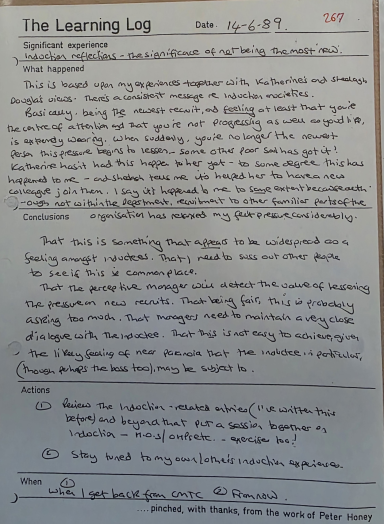 The Learning Log Date. 14-6-89. 267
Significant experience
Induction reflections - the significance of not being the most new.
What happened
This is based upon my experiences together with Katherine's and Shelagh
Douglas views. There's a consistent message re induction anxieties.
Basically, being the newest recruit, and feeling at least that you're
the centre of attention and that you're not progressing as well as you'd like,
is extremely wearing. When suddenly, you're no longer the newest
person this pressure begins to lessen. Some other poor sod has got it!
Katherine hasn't had this happen to her yet - to some degree this has
happened to me - and Shelagh tells me it's helped her to have a new
colleague join them. I say it happened to me to some extent because alth-
ough not within the department, recruitment to other familiar parts of the
Conclusions organisation has relaxed my felt pressure considerably.
That this is something that appears to be widespread as a
feeling amongst inductees. That I need to suss out other people
to see if this is commonplace.
That the perceptive manager will detect the value of lessening
the pressure on new recruits. That being fair, this is probably
asking too much. That managers need to maintain a very close
dialogue with the inductee. That this is not easy to achieve, given
the likely feeling of near paranoia that the inductee in particular,
(though perhaps the boss too), may be subject to.
Actions
① Review the induction-related entries (I've written this
before) and beyond that put a session together on
Induction - exercise too!
② Stay tuned to my own/others induction experiences.
When ①
When I get back from CMTC ② From now.
.... pinched, with thanks, from the work of Peter Honey